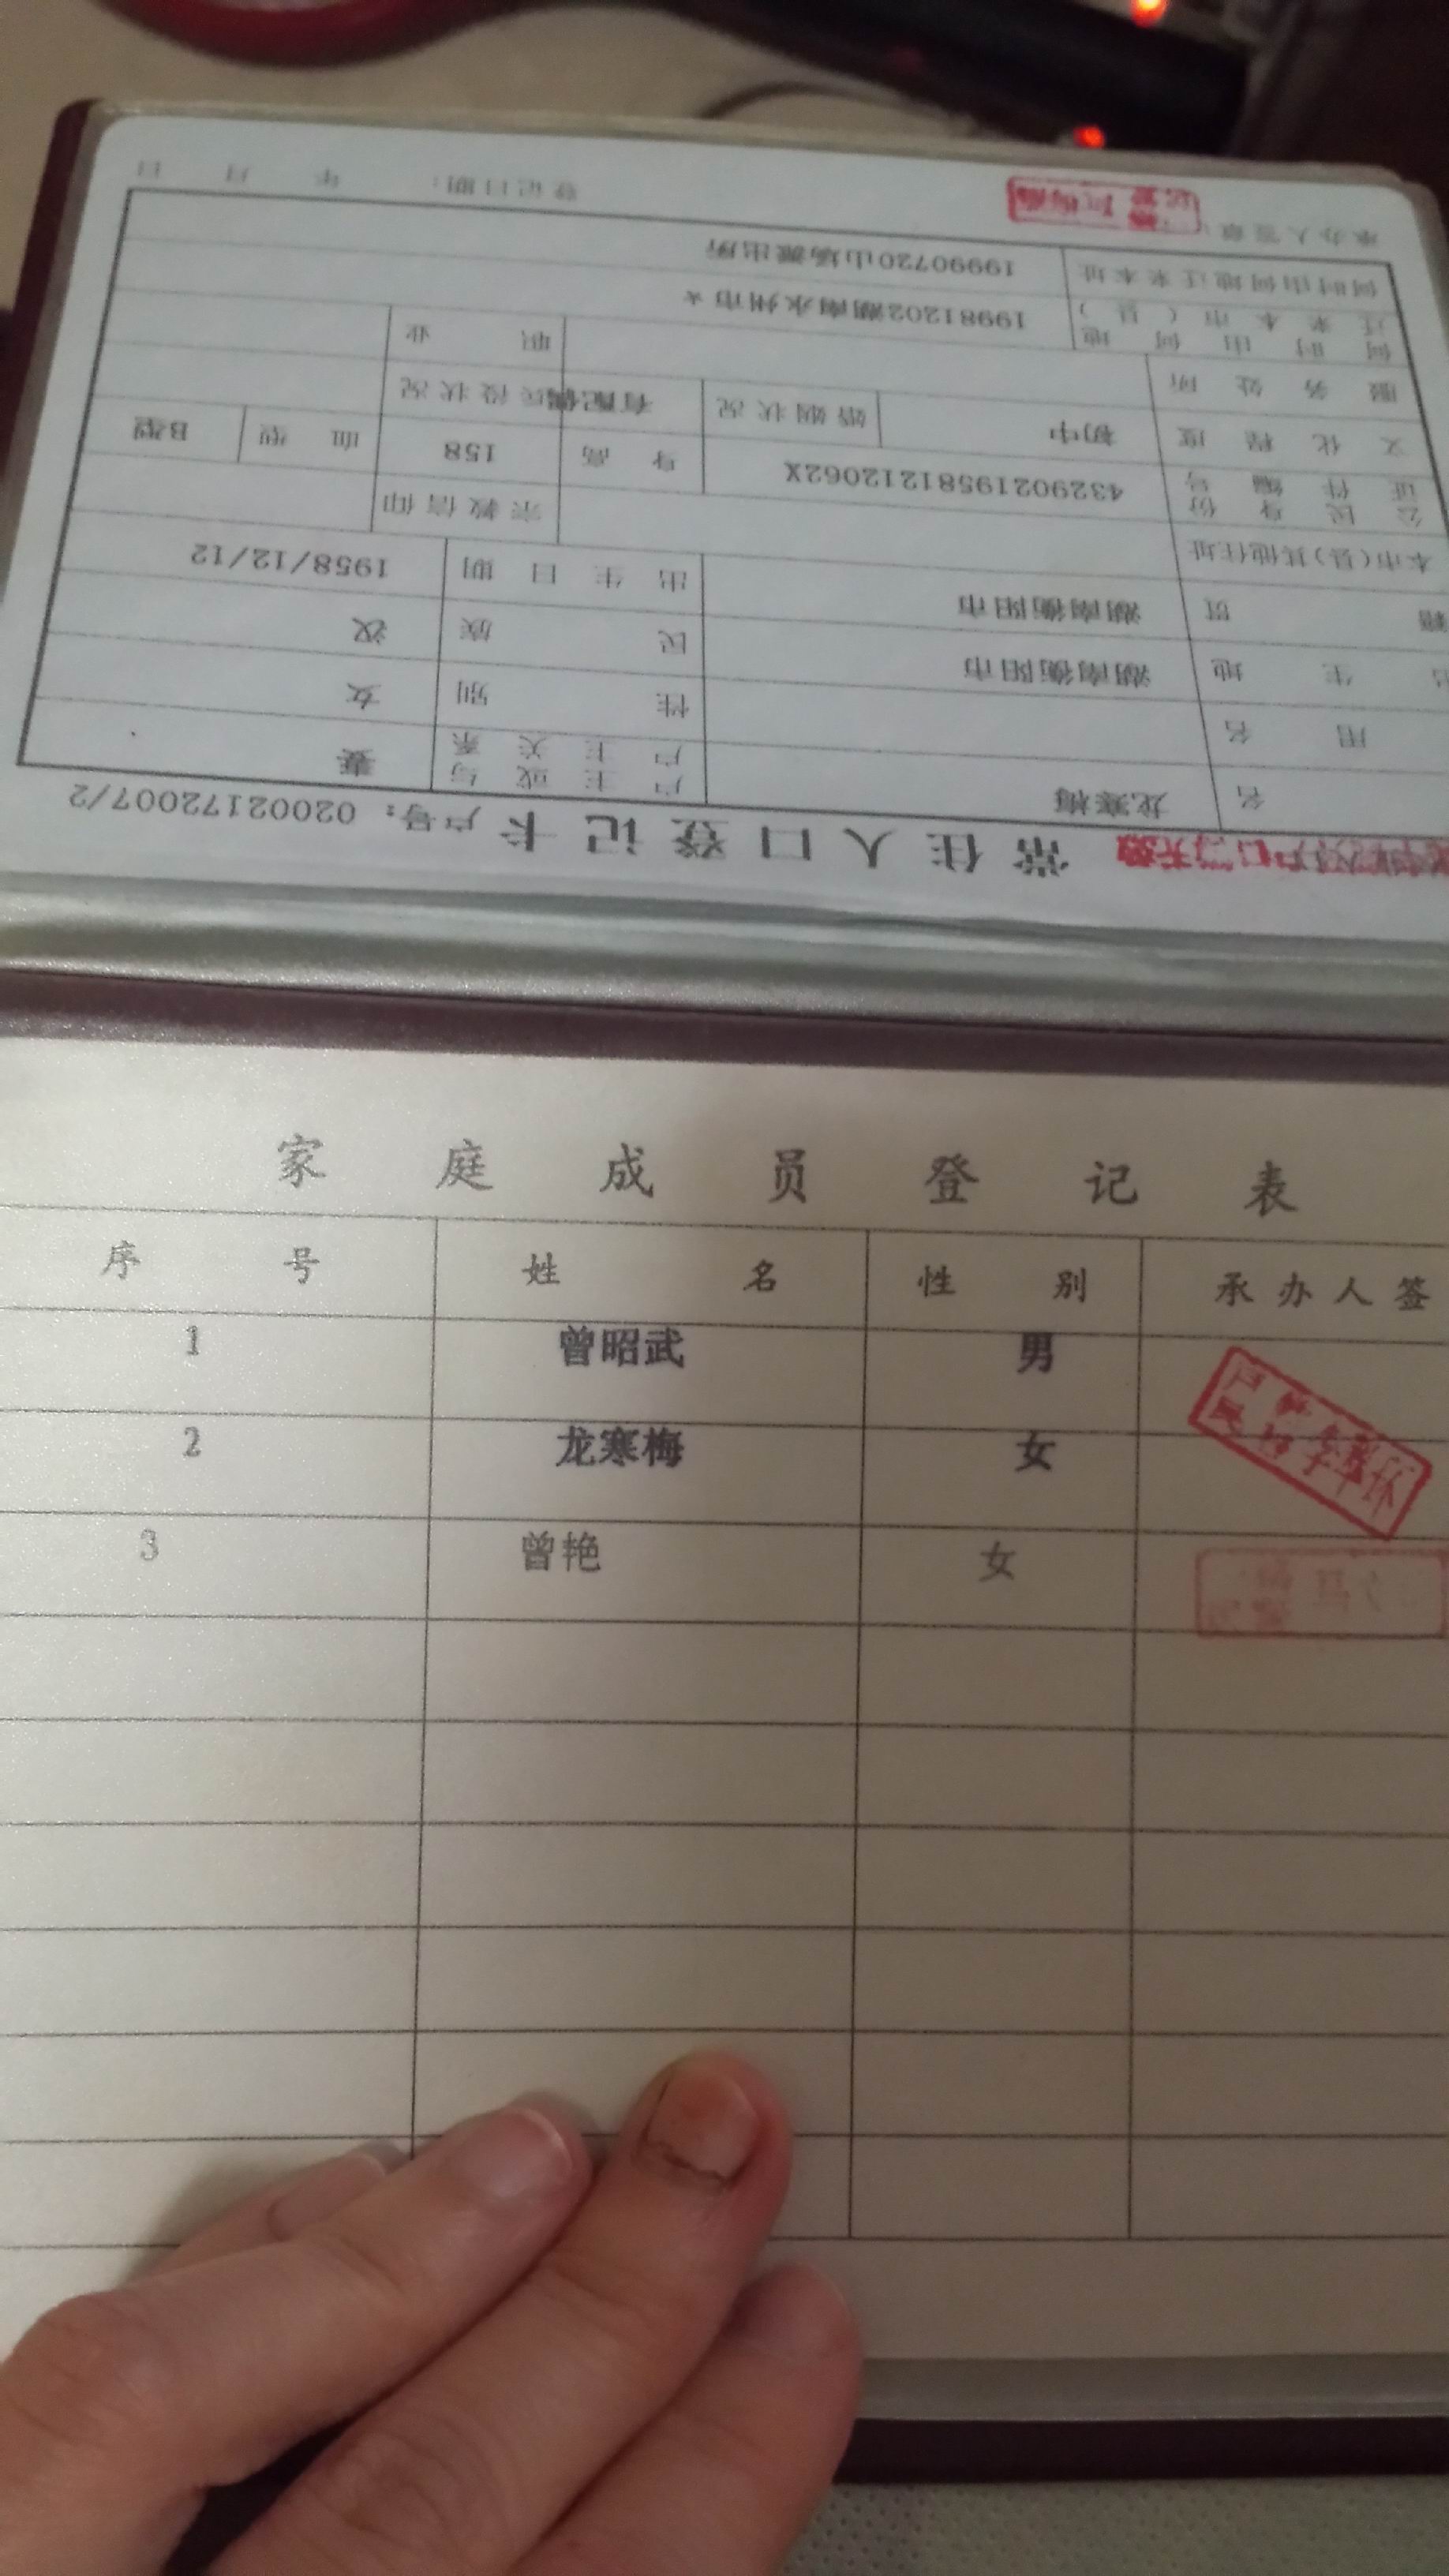 常住人口登记卡 户号: 02002172007/2
名 龙寒梅 户主或与户主关系 妻
用名 性别 女
生地 湖南衡阳市 民族 汉
籍贯 湖南衡阳市 出生日期 1958/12/12
本市(县)其他住址 宗教信仰
公民身份证件编号 43290219581212062X 身高 158 血型 B型
文化程度 初中 婚姻状况 有配偶 兵役状况
服务处所 职业
何时由何地迁来本市(县) 19981202湖南永州市*
何时由何地迁来本址 19990720山场派出所
承办人签章: 登记日期: 年 月 日
家庭成员登记表
序号 姓名 性别 承办人签
1 曾昭武 男
2 龙寒梅 女
3 曾艳 女